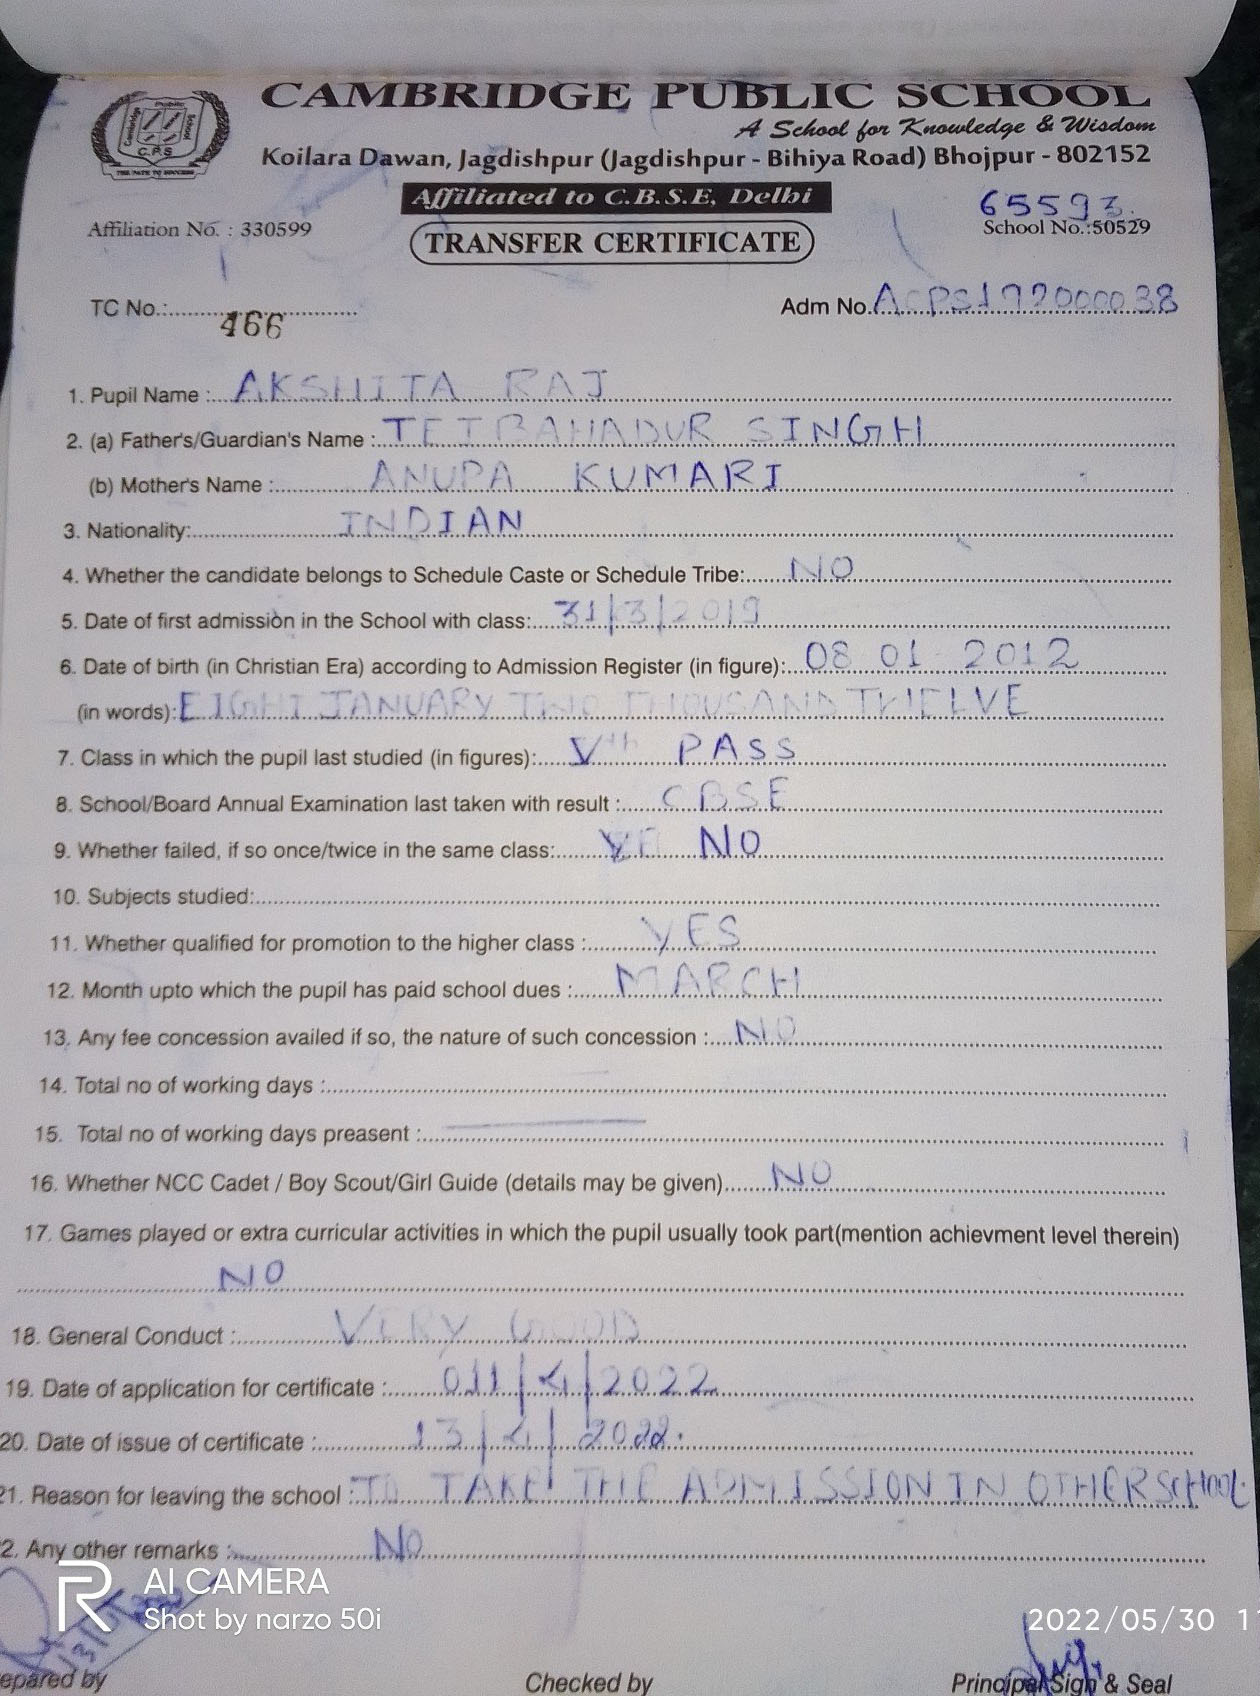 CAMBRIDGE PUBLIC SCHOOL
A School for Knowledge & Wisdom
Koilara Dawan, Jagdishpur (Jagdishpur - Bihiya Road) Bhojpur - 802152
Affiliated to C.B.S.E, Delhi
65593
Affiliation No. : 330599
School No.:50529
TRANSFER CERTIFICATE
Cambridge Public School
C.P.S
TC No.: 466
Adm No. ACPS192000038
1. Pupil Name : AKSHITA RAJ
2. (a) Father's/Guardian's Name : TEJ BAHADUR SINGH
(b) Mother's Name : ANUPA KUMARI
3. Nationality: INDIAN
4. Whether the candidate belongs to Schedule Caste or Schedule Tribe: NO
5. Date of first admission in the School with class: 31/3/2019
6. Date of birth (in Christian Era) according to Admission Register (in figure): 08 01 2012
(in words): EIGHT JANUARY TWO THOUSAND TWELVE
7. Class in which the pupil last studied (in figures): Vth PASS
8. School/Board Annual Examination last taken with result : CBSE
9. Whether failed, if so once/twice in the same class: NO
10. Subjects studied:
11. Whether qualified for promotion to the higher class : YES
12. Month upto which the pupil has paid school dues : MARCH
13. Any fee concession availed if so, the nature of such concession : NO
14. Total no of working days :
15. Total no of working days preasent :
16. Whether NCC Cadet / Boy Scout/Girl Guide (details may be given) NO
17. Games played or extra curricular activities in which the pupil usually took part(mention achievment level therein)
NO
18. General Conduct : VERY GOOD
19. Date of application for certificate : 011/4/2022
20. Date of issue of certificate : 13/4/2022.
21. Reason for leaving the school : TO TAKE THE ADMISSION IN OTHER SCHOOL
2. Any other remarks : NO
AI CAMERA
Shot by narzo 50i
2022/05/30 1
epared by
Checked by
Principal Sign & Seal